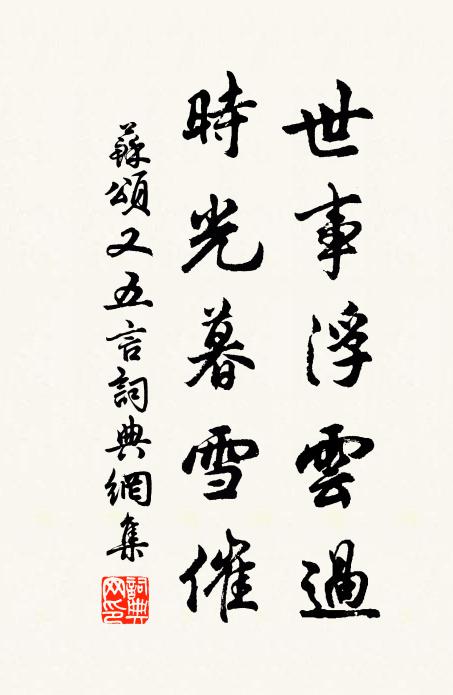 世事浮雲過
時光暮雪催
蘇頌又五言詞典網集
詞典網印